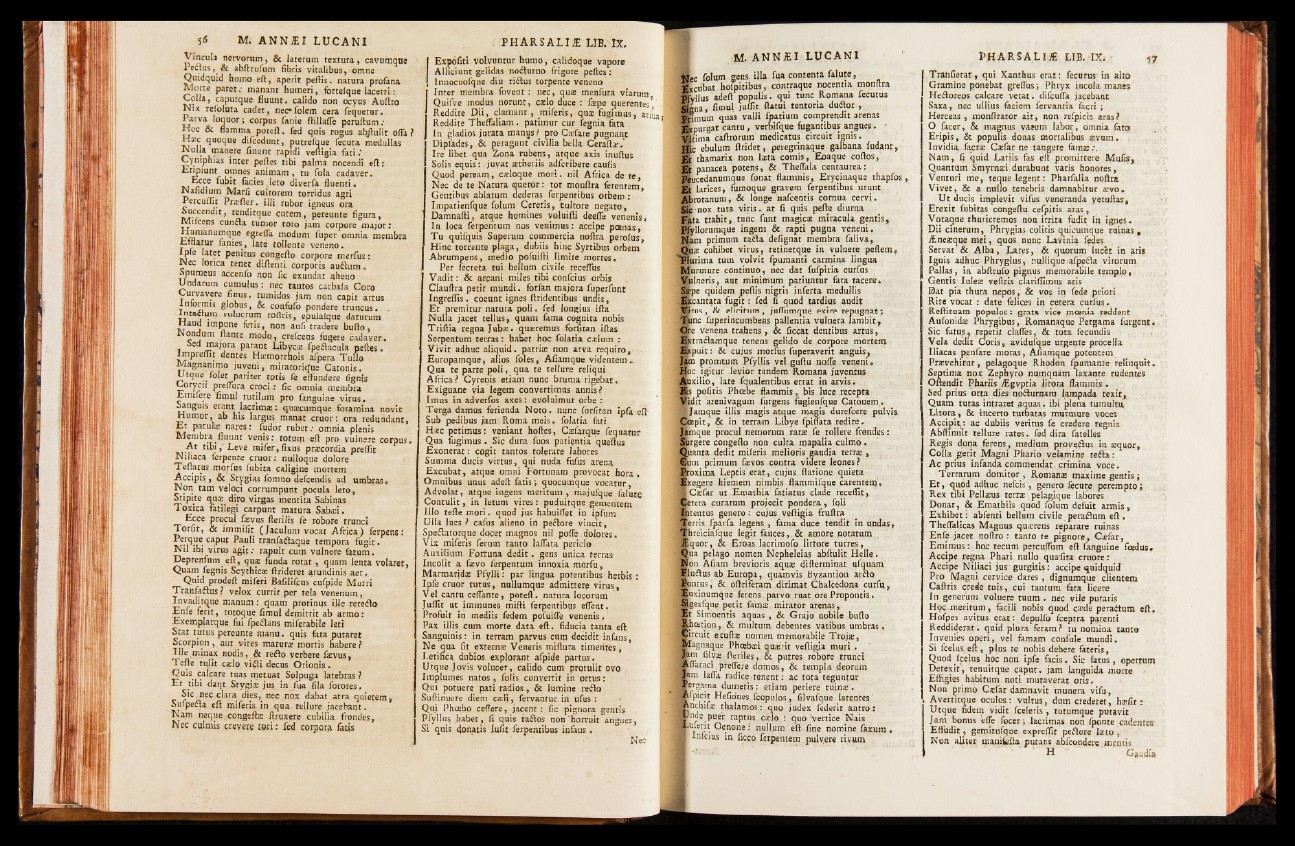 56 M. ANNÆI LUCANI
Vincula nervorum, & laterum textura, cavumque
Pectus, & abstrusum fibris vitalibus, omne
Quidquid homo est, aperit pestis. natura profana
Morte patet: manant humeri, fortesque lacerti:
Colla, caputque fluunt. calido non ocyus Austro
Nix resoluta cadet, nec solem cera sequetur.
Parva loquor; corpus sanie stillasse perustum:
Hoc & flamma potest. sed quis rogus abstulit ossa?
Hæc quoque discedunt, putresque secuta medullas
Nulla manere sinunt rapidi vestigia fati:
Cyniphias inter pestes tibi palma nocendi est:
Eripiunt omnes animam, tu sola cadaver.
Ecce subit facies leto diversa fluenti.
Nasidium Marsi cultorem torridus agri
Percussit Præster. illi rubor igneus ora
Succendit, tenditque cutem, pereunte figura,
Miscens cuncta tumor toto jam corpore major:
Humanumque egressa modum super omnia membra
Efflatur sanies, late tollente veneno.
Ipse latet penitus congesto corpore mersus:
Nec lorica tenet distenti corporis auctum.
Spumeus accenso non sic exundat aheno
Undarum cumulus: nec tantos carbasa Coro
Curvavere sinus. tumidos jam non capit artus
Informis globus, & confuso pondere truncus.
Intactum volucrum rostris, epulasque daturum
Haud impune feris, non ausi tradere busto,
Nondum stante modo, crescens fugere cadaver.
Sed majora parant Libycæ spectacula pestes.
Impressit dentes Hæmorrhois aspera Tullo
Magnanimo juveni, miratorique Catonis.
Utque solet pariter totis se effundere signis
Corycii pressura croci: sic omnia membra
Emisere simul rutilum pro sanguine virus.
Sanguis erant lacrimæ: quæcumque foramina novit
Humor, ab his largus manat cruor: ora redundant,
Et patulæ nares: sudor rubet: omnia plenis
Membra fluunt venis: totum est pro vulnere corpus.
At tibi, Leve miser, fixus præcordia pressit
Niliaca serpente cruor: nulloque dolore
Testatus morsus subita caligine mortem
Accipis, & Stygias somno descendis ad umbras.
Non tam veloci corrumpunt pocula leto,
Stipite quæ diro virgas mentita Sabinas
Toxica fatilegi carpunt matura Sabæi.
Ecce procul sævus sterilis se robore trunci
Torsit, & immisit (Jaculum vocat Africa) serpens:
Perque caput Pauli transactaque tempora fugit.
Nil ibi virus agit: rapuit cum vulnere fatum.
Deprensum est, quæ funda rotat, quam lenta volaret,
Quam segnis Scythicæ strideret arundinis aer.
Quid prodest miseri Basiliscus cuspide Murri
Transactus? velox currit per tela venenum,
Invaditque manum: quam protinus ille retecto
Ense ferit, totoque simul demittit ab armo:
Exemplarque sui spectans miserabile leti
Stat tutus pereunte manu. quis fata putaret
Scorpion, aut vires maturæ mortis habere?
Ille minax nodis, & recto verbere sævus,
Teste tulit cælo victi decus Orionis.
Quis calcare tuas metuat Solpuga latebras?
Et tibi dant Stygiæ jus in sua fila sorores.
Sic nec clara dies, nec nox dabat atra quietem,
Suspecta est miseris in qua tellure jacebant.
Nam neque congestæ struxere cubilia frondes,
Nec culmis crevere tori: sed corpora fatis
PHARSALIÆ LIB. IX.
Expositi volvuntur humo, calidoque vapore
Alliciunt gelidas nocturno frigore pestes:
Innocuosque diu rictus torpente veneno
Inter membra fovent: nec, quæ mensura viarum,
Quisve modus norunt, cælo duce: sæpe querentes,
Reddite Dii, clamant, miseris, quæ fugimus, arma;
Reddite Thessaliam. patimur cur segnia fata
In gladios jurata manus? pro Cæsare pugnant
Dipsades, & peragunt civilia bella Cerastæ.
Ire libet qua Zona rubens, atque axis inustus
Solis equis: juvat ætheriis adscribere causis
Quod peream, cæloque mori. nil Africa de te,
Nec de te Natura queror: tot monstra ferentem,
Gentibus ablatum dederas serpentibus orbem:
Impatiensque solum Cereris, cultore negato,
Damnasti, atque homines voluisti deesse venenis.
In loca serpentum nos venimus: accipe pœnas,
Tu quisquis Superum commercia nostra perosus,
Hinc torrente plaga, dubiis hinc Syrtibus orbem
Abrumpens, medio posuisti limite mortes.
Per secreta tui bellum civile recessus
Vadit: & arcani miles tibi conscius orbis
Claustra petit mundi. forsan majora supersunt
Ingressis. coeunt ignes stridentibus undis,
Et premitur natura poli. sed longius ista
Nulla jacet tellus, quam fama cognita nobis
Tristia regna Jubæ. quæremus forsitan istas
Serpentum terras: habet hoc solatia cælum:
Vivit adhuc aliquid. patriæ non arva requiro,
Europamque, alios soles, Asiamque videntem.
Qua te parte poli, qua te tellure reliqui
Africa? Cyrenis etiam nunc bruma rigebat.
Exiguane via legem convertimus annis?
Imus in adversos axes: evolvimur orbe:
Terga damus ferienda Noto. nunc forsitan ipsa est
Sub pedibus jam Roma meis. solatia fati
Hæc petimus: veniant hostes, Cæsarque sequatur
Qua fugimus. Sic dura suos patientia questus
Exonerat: cogit tantos tolerare labores
Summa ducis virtus, qui nuda fusus arena
Excubat, atque omni Fortunam provocat hora.
Omnibus unus adest fatis; quocumque vocatur,
Advolat, atque ingens meritum, majusque salute
Contulit, in letum vires: puduitque gementem
Illo teste mori. quod jus habuisset in ipsum
Ulla lues? casus alieno in pectore vincit,
Spectatorque docet magnos nil posse dolores.
Vix miseris serum tanto lassata periclo
Auxilium Fortuna dedit. gens unica terras
Incolit a sævo serpentum innoxia morsu,
Marmaridæ Psylli: par lingua potentibus herbis:
Ipse cruor tutus, nullumque admittere virus,
Vel cantu cessante, potest. natura locorum
Jussit ut immunes misti serpentibus essent.
Profuit in mediis sedem posuisse venenis.
Pax illis cum morte data est. fiducia tanta est
Sanguinis: in terram parvus cum decidit infans,
Ne qua sit externæ Veneris mistura timentes,
Letifica dubios explorant aspide partus.
Utque Jovis volucer, calido cum protulit ovo
Implumes natos, solis convertit in ortus:
Qui potuere pati radios, & lumine recto
Sustinuere diem cæli, servantur in usus:
Qui Phœbo cessere, jacent: sic pignora gentis
Psyllus habet, si quis tactos non horruit angues,
Si quis donatis lusit serpentibus infans.
Nec
M. ANNÆI LUCANI
Nec solum gens illa sua contenta salute,
Excubat hospitibus, contraque nocentia monstra
Psyllus adest populis. qui tunc Romana secutus
Signa, simul jussit statui tentoria ductor,
Primum quas valli spatium comprendit arenas
Expurgat cantu, verbisque fugantibus angues.
Ultima castrorum medicatus circuit ignis.
Hic ebulum stridet, peregrinaque galbana sudant,
Et thamarix non læta comis, Eoaque costos,
Et panacea potens, & Thessala centaurea:
Peucedanumque sonat flammis, Erycinaque thapsos,
Et larices, fumoque gravem serpentibus urunt
Abrotanum, & longe nascentis cornua cervi.
Sic nox tuta viris. at si quis peste diurna
Fata trahit, tunc sunt magicæ miracula gentis,
Psyllorumque ingens & rapti pugna veneni.
Nam primum tacta designat membra saliva,
Quæ cohibet virus, retinetque in vulnere pestem.
Plurima tum volvit spumanti carmina lingua
Murmure continuo, nec dat suspiria cursus
Vulneris, aut minimum patiuntur fata tacere.
Sæpe quidem pestis nigris inserta medullis
Excantata fugit: sed si quod tardius audit
Virus, & elicitum, jussumque exire repugnat;
Tunc superincumbens pallentia vulnera lambit,
Ore venena trahens, & siccat dentibus artus,
Extractamque tenens gelido de corpore mortem
Expuit: & cujus morsus superaverit anguis,
Jam promtum Psyllis vel gustu nosse veneni.
Hoc igitur levior tandem Romana juventus
Auxilio, late squalentibus errat in arvis.
Bis positis Phœbe flammis, bis luce recepta
Vidit arenivagum surgens fugiensque Catonem.
Jamque illis magis atque magis durescere pulvis
Cœpit, & in terram Libye spissata redire.
Jamque procul nemorum raræ se tollere frondes:
Surgere congesto non culta mapalia culmo.
Quanta dedit miseris melioris gaudia terræ,
Cum primum sævos contra videre leones?
Proxima Leptis erat, cujus statione quieta
Exegere hiemem nimbis flammisque carentem.
Cæsar ut Emathia satiatus clade recessit,
Cetera curarum projecit pondera, soli
Intentus genero: cujus vestigia frustra
Terris sparsa legens, fama duce tendit in undas,
Threiciasque legit fauces, & amore notatum
Æquor, & Eroas lacrimoso littore turres,
Qua pelago nomen Nepheleias abstulit Helle.
Non Asiam brevioris aquæ disterminat usquam
Fluctus ab Europa, quamvis Byzantion arcto
Pontus, & ostriferam dirimat Chalcedona cursu,
Euxinumque ferens parvo ruat ore Propontis.
Sigeasque petit famæ mirator arenas,
Et Simoentis aquas, & Grajo nobile busto
Rhœtion, & multum debentes vatibus umbras.
Circuit exustæ nomen memorabile Trojæ,
Magnaque Phœbei quærit vestigia muri.
Jam silvæ steriles, & putres robore trunci
Assaraci pressere domos, & templa deorum
Jam lassa radice tenent: ac tota teguntur
Pergama dumetis: etiam periere ruinæ.
Aspicit Hesiones scopulos, silvasque latentes
Anchisæ thalamos: quo judex sederit antro:
Unde puer raptus cælo: quo vertice Nais
Luserit Oenone: nullum est sine nomine saxum.
Inscius in sicco serpentem pulvere rivum
PHARSALIÆ LIB. IX. 57
Transierat, qui Xanthus erat: securus in alto
Gramine ponebat gressus; Phryx incola manes
Hectoreos calcare vetat. discussa jacebant
Saxa, nec ullius faciem servantia sacri;
Herceas, monstrator ait, non respicis aras?
O sacer, & magnus vatum labor, omnia fato
Eripis, & populis donas mortalibus ævum.
Invidia sacræ Cæsar ne tangere famæ:
Nam, si quid Latiis fas est promittere Musis,
Quantum Smyrnæi durabunt vatis honores,
Venturi me, teque legent: Pharsalia nostra
Vivet, & a nullo tenebris damnabitur ævo.
Ut ducis implevit visus veneranda vetustas,
Erexit subitas congestu cespitis aras,
Votaque thuricremos non irrita fudit in ignes.
Dii cinerum, Phrygias colitis quicumque ruinas,
Æneæque mei, quos nunc Lavinia sedes
Servat & Alba, Lares, & quorum lucet in aris
Ignis adhuc Phrygius, nullique aspecta virorum
Pallas, in abstruso pignus memorabile templo,
Gentis Iuleæ vestris clarissimus aris
Dat pia thura nepos, & vos in sede priori
Rite vocat: date felices in cetera cursus.
Restituam populos: grata vice mœnia reddent
Ausonidæ Phrygibus, Romanaque Pergama surgent.
Sic fatus, repetit classes, & tota secundis
Vela dedit Coris, avidusque urgente procella
Iliacas pensare moras, Asiamque potentem
Prævehitur, pelagoque Rhodon spumante relinquit.
Septima nox Zephyro numquam laxante rudentes
Ostendit Phariis Ægyptia litora flammis.
Sed prius orta dies nocturnam lampada texit,
Quam tutas intraret aquas. ibi plena tumultu
Litora, & incerto turbatas murmure voces
Accipit: ac dubiis veritus se credere regnis
Abstinuit tellure rates. sed dira satelles
Regis dona ferens, medium provectus in æquor,
Colla gerit Magni Phario velamine tecta:
Ac prius infanda commendat crimina voce.
Terrarum domitor, Romanæ maxime gentis;
Et, quod adhuc nescis, genero secure perempto;
Rex tibi Pellæus terræ pelagique labores
Donat, & Emathiis quod solum defuit armis,
Exhibet: absenti bellum civile peractum est.
Thessalicas Magnus quærens reparare ruinas
Ense jacet nostro: tanto te pignore, Cæsar,
Emimus: hoc tecum percussum est sanguine fœdus.
Accipe regna Phari nullo quæsita cruore:
Accipe Niliaci jus gurgitis: accipe quidquid
Pro Magni cervice dares, dignumque clientem
Castris crede tuis, cui tantum fata licere
In generum voluere tuum. nec vile putaris
Hoc meritum, facili nobis quod cæde peractum est.
Hospes avitus erat: depulso sceptra parenti
Reddiderat. quid plura feram? tu nomina tanto
Invenies operi, vel famam consule mundi.
Si scelus est, plus te nobis debere fateris,
Quod scelus hoc non ipse facis. Sic fatus, opertum
Detexit, tenuitque caput. jam languida morte
Effigies habitum noti mutaverat oris.
Non primo Cæsar damnavit munera visu,
Avertitque oculos: vultus, dum crederet, hæsit:
Utque fidem vidit sceleris, tutumque putavit
Jam bonus esse socer; lacrimas non sponte cadentes
Effudit, gemitusque expressit pectore læto,
Non aliter manifesta putans abscondere mentis
H Gaudia